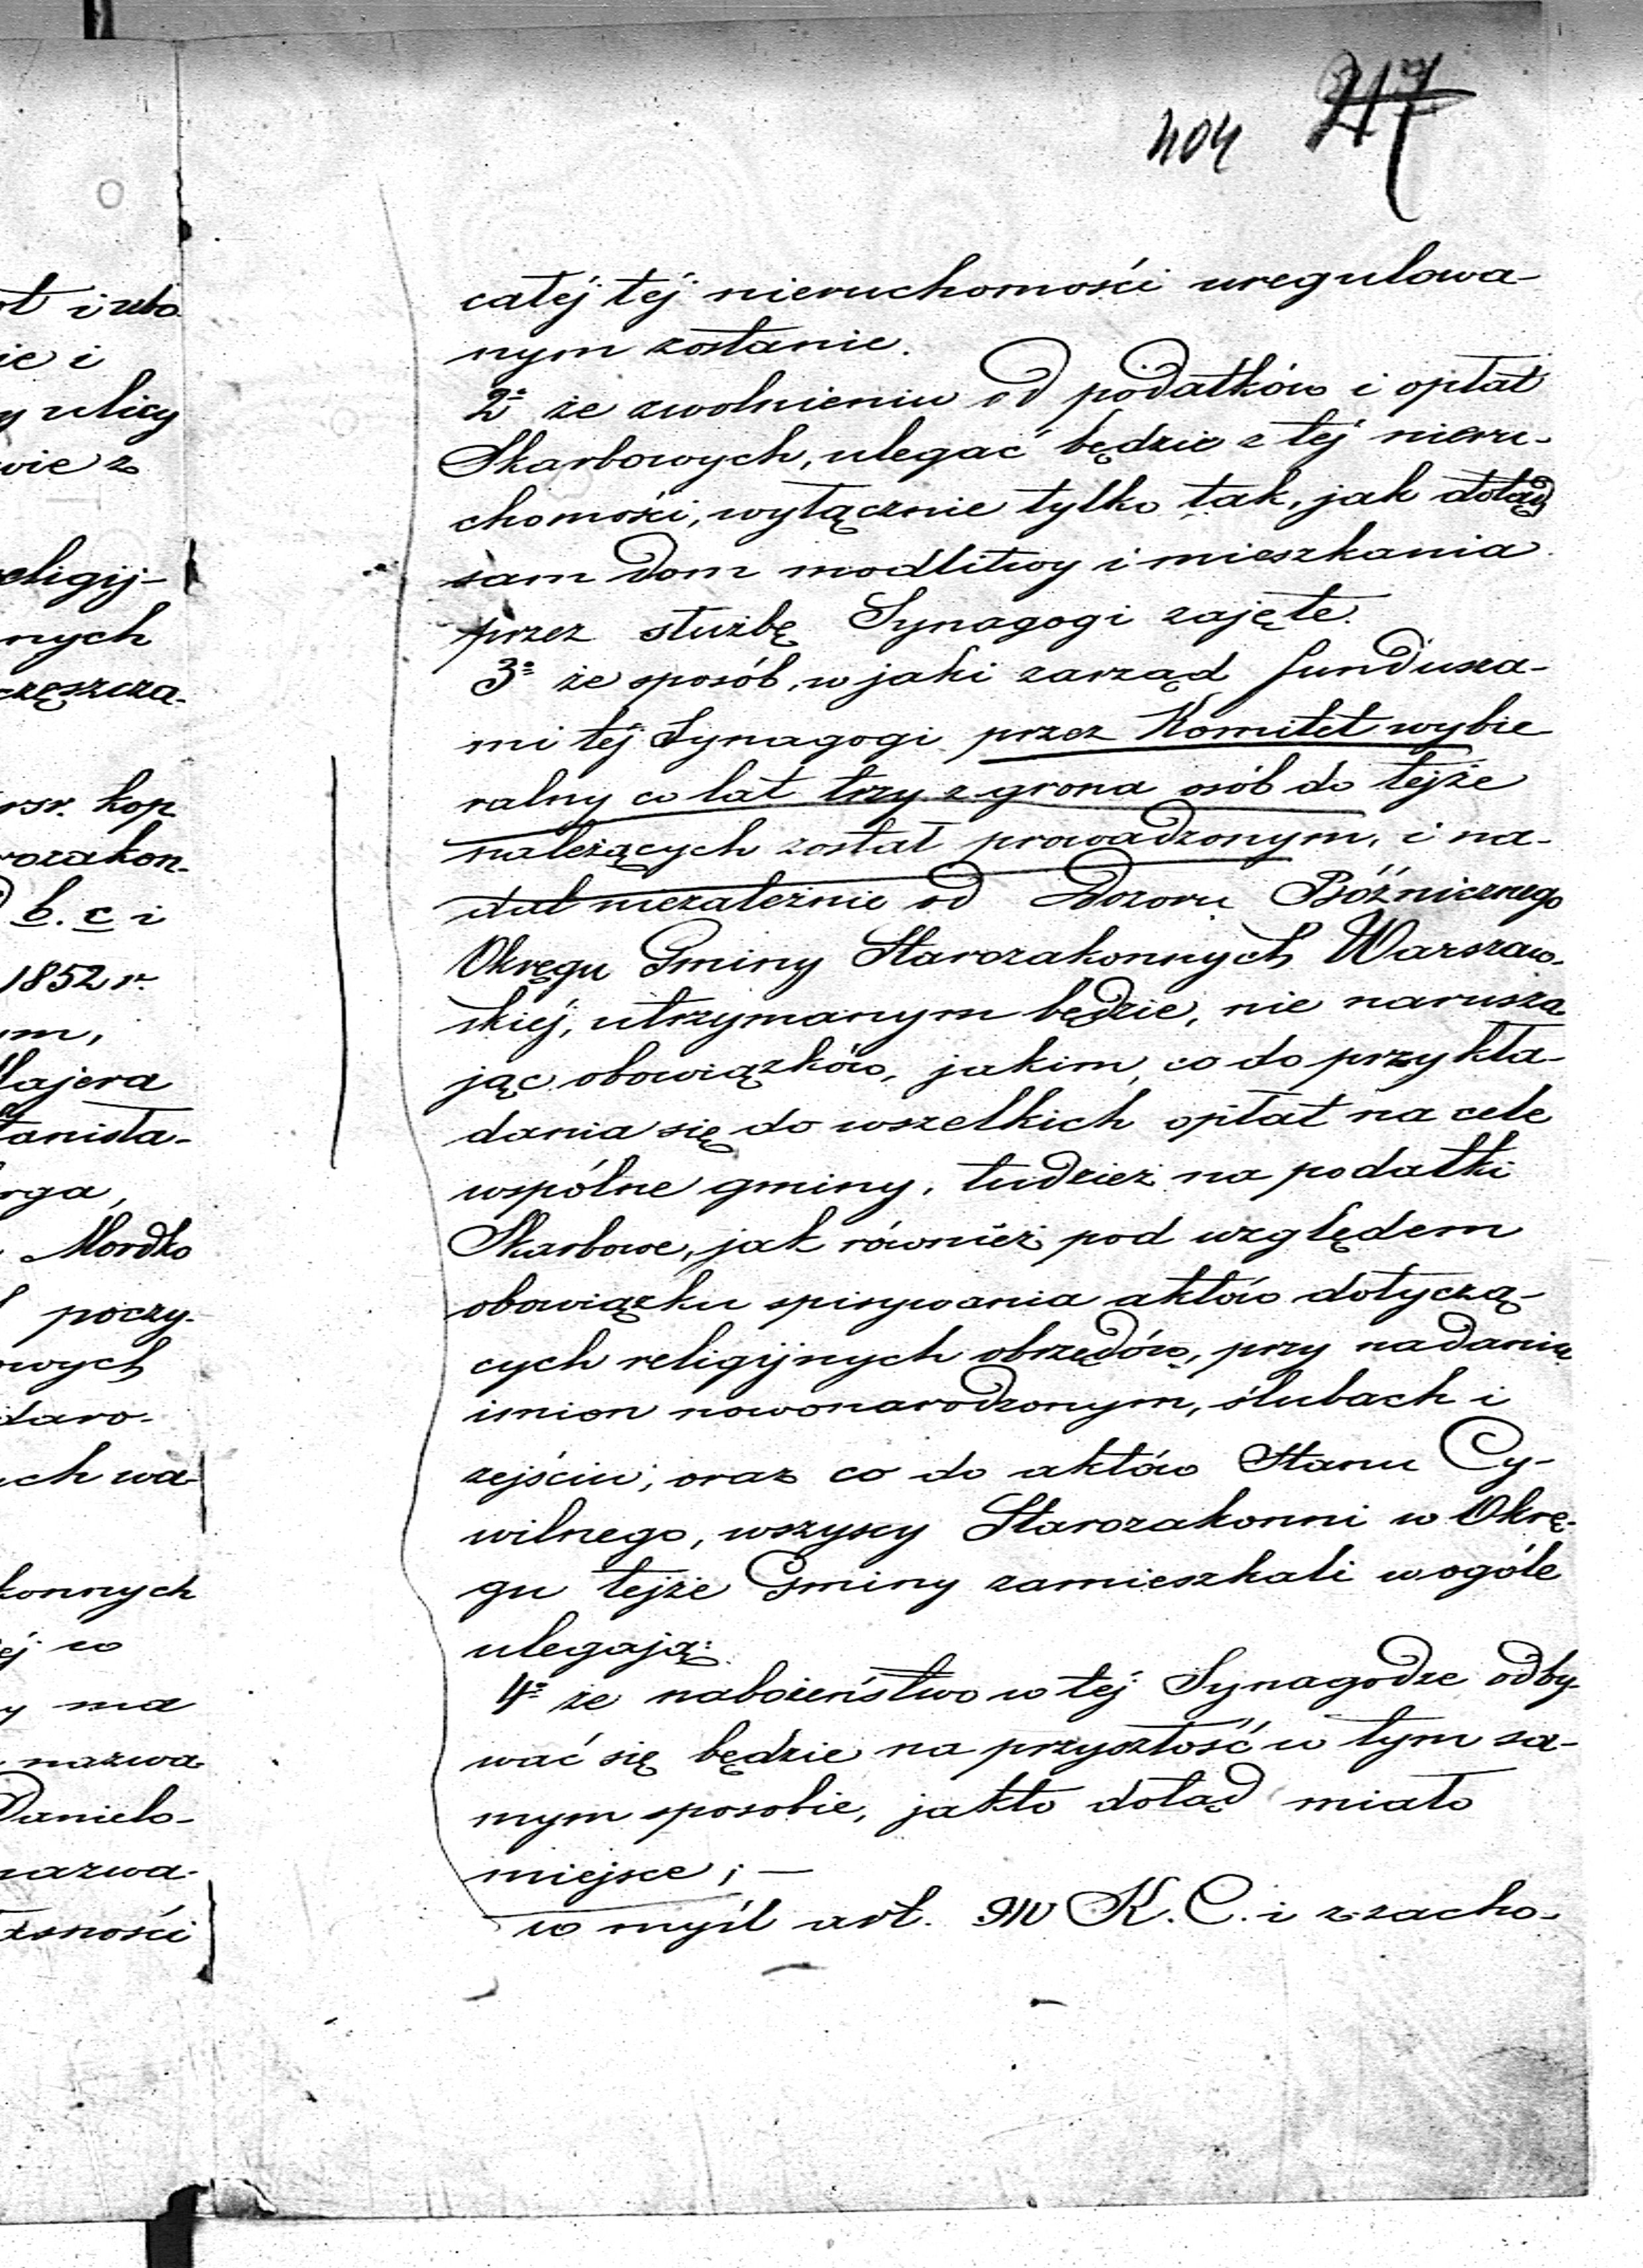 404 217
całéj téj nieruchomości uregulowa-
nym zostanie.
2º że zwolnieniu od podatków i opłat
Skarbowych, ulegać będzie z téj nieru-
chomości, wyłącznie tylko tak, jak dotąd
sam dom modlitwy i mieszkania
przez służbę Synagogi zajęte.
3º że sposób, w jaki zarząd fundusza-
mi téj Synagogi przez Komitet wybie
ralny co lat trzy z grona osób do tejże
należących został prowadzonym, i na-
dal niezależnie od Dozoru Bóźnicznego
Okręgu Gminy Starozakonnych Warszaw-
skiéj, utrzymanym będzie, nie narusza
jąc obowiązków, jakim, co do przykła-
dania się do wszelkich opłat na cele
wspólne gminy, tudzież na podatki
Skarbowe, jak również pod względem
obowiązku spisywania aktów dotyczą-
cych religijnych obrzędów, przy nadaniu
imion nowonarodzonym, ślubach i
zejściu; oraz co do aktów Stanu Cy-
wilnego, wszyscy Starozakonni w Okrę-
gu tejże Gminy zamieszkali w ogóle
ulegają:
4º że nabożeństwo w téj Synagodze odby-
wać się będzie na przyszłość w tym sa-
mym sposobie, jakto dotąd miało
miejsce; —
w myśl art. 910 K. C. i z zacho-
ie i
y ulicy
wie z
religij-
nych
częszcza-
rsr. kop
rozakon-
b. c i
1852 r.
ym,
Majera
tanisła-
rga,
Mordko
poczy-
owych
daro-
ych wa-
konnych
éj w
y ma
nazwa
Danielo-
nazwa-